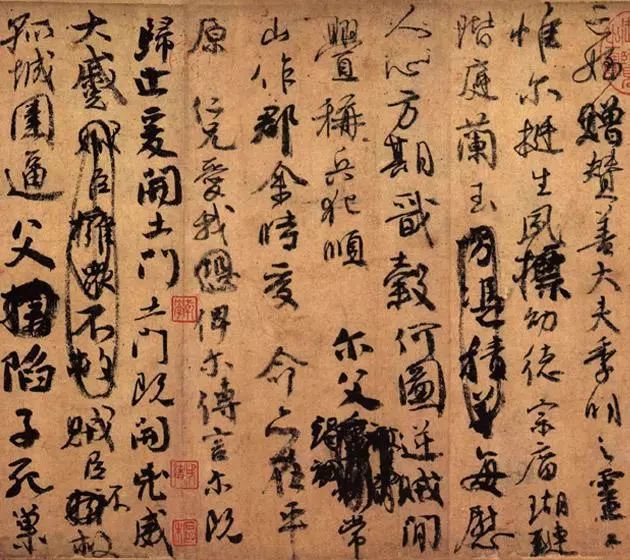 亡姪贈贊善大夫季明之靈曰
惟尔挺生夙標幼德宗廟瑚璉
階庭蘭玉方憑積善每慰
人心方期戩穀何圖逆賊間
舋稱兵犯順 尔父常
山作郡余時受 命亦在平
原 仁兄愛我恐俾尔傳言尔既
歸止爰開土門土門既開凶威
大蹙賊臣擁眾不救賊臣不救
孤城圍逼父陷子死巢